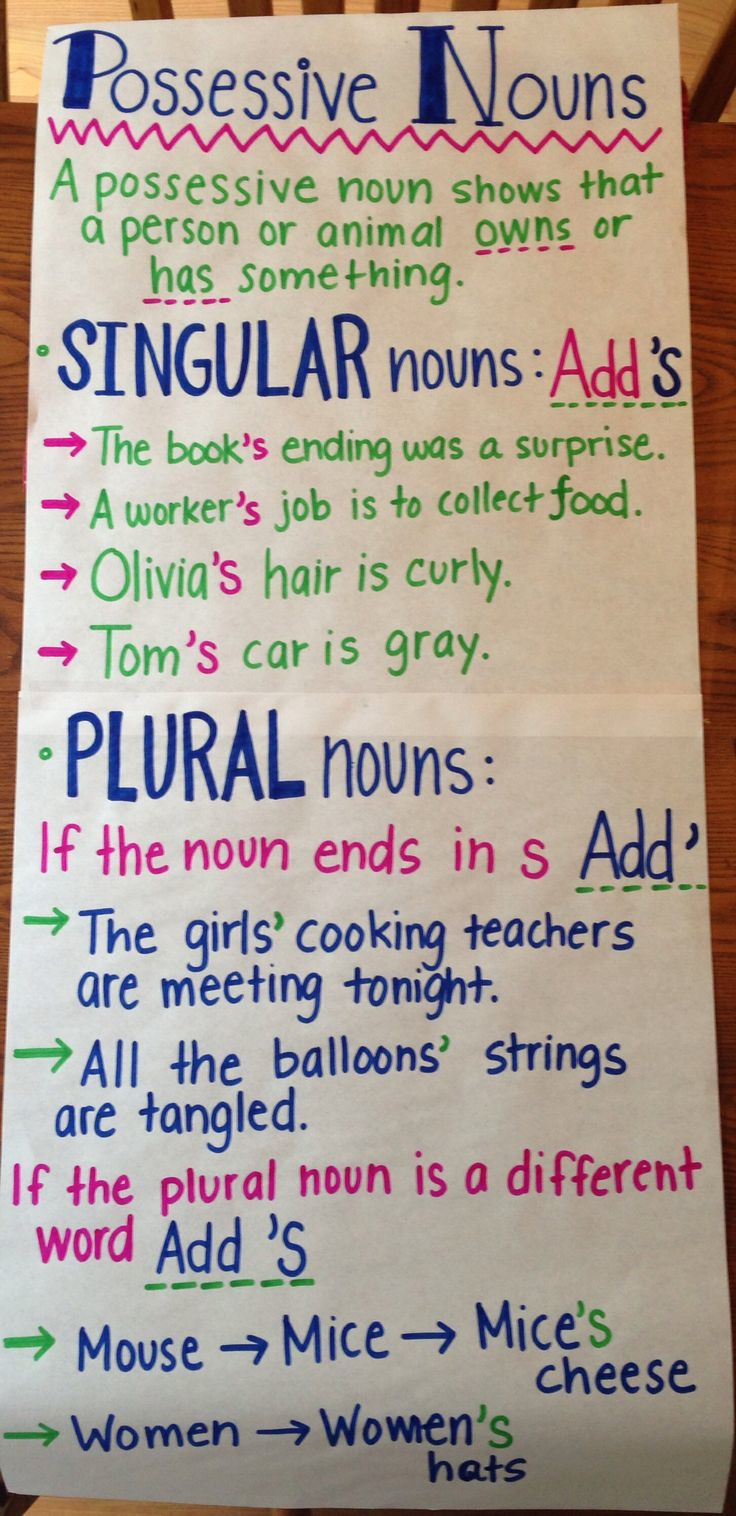 Possessive Nouns
A possessive noun shows that
a person or animal owns or
has something.
• SINGULAR nouns: Add 's
→ The book's ending was a surprise.
→ A worker's job is to collect food.
→ Olivia's hair is curly.
→ Tom's car is gray.
• PLURAL nouns:
If the noun ends in s Add '
→ The girls' cooking teachers
are meeting tonight.
→ All the balloons' strings
are tangled.
If the plural noun is a different
word Add 'S
→ Mouse → Mice → Mice's
cheese
→ Women → Women's
hats